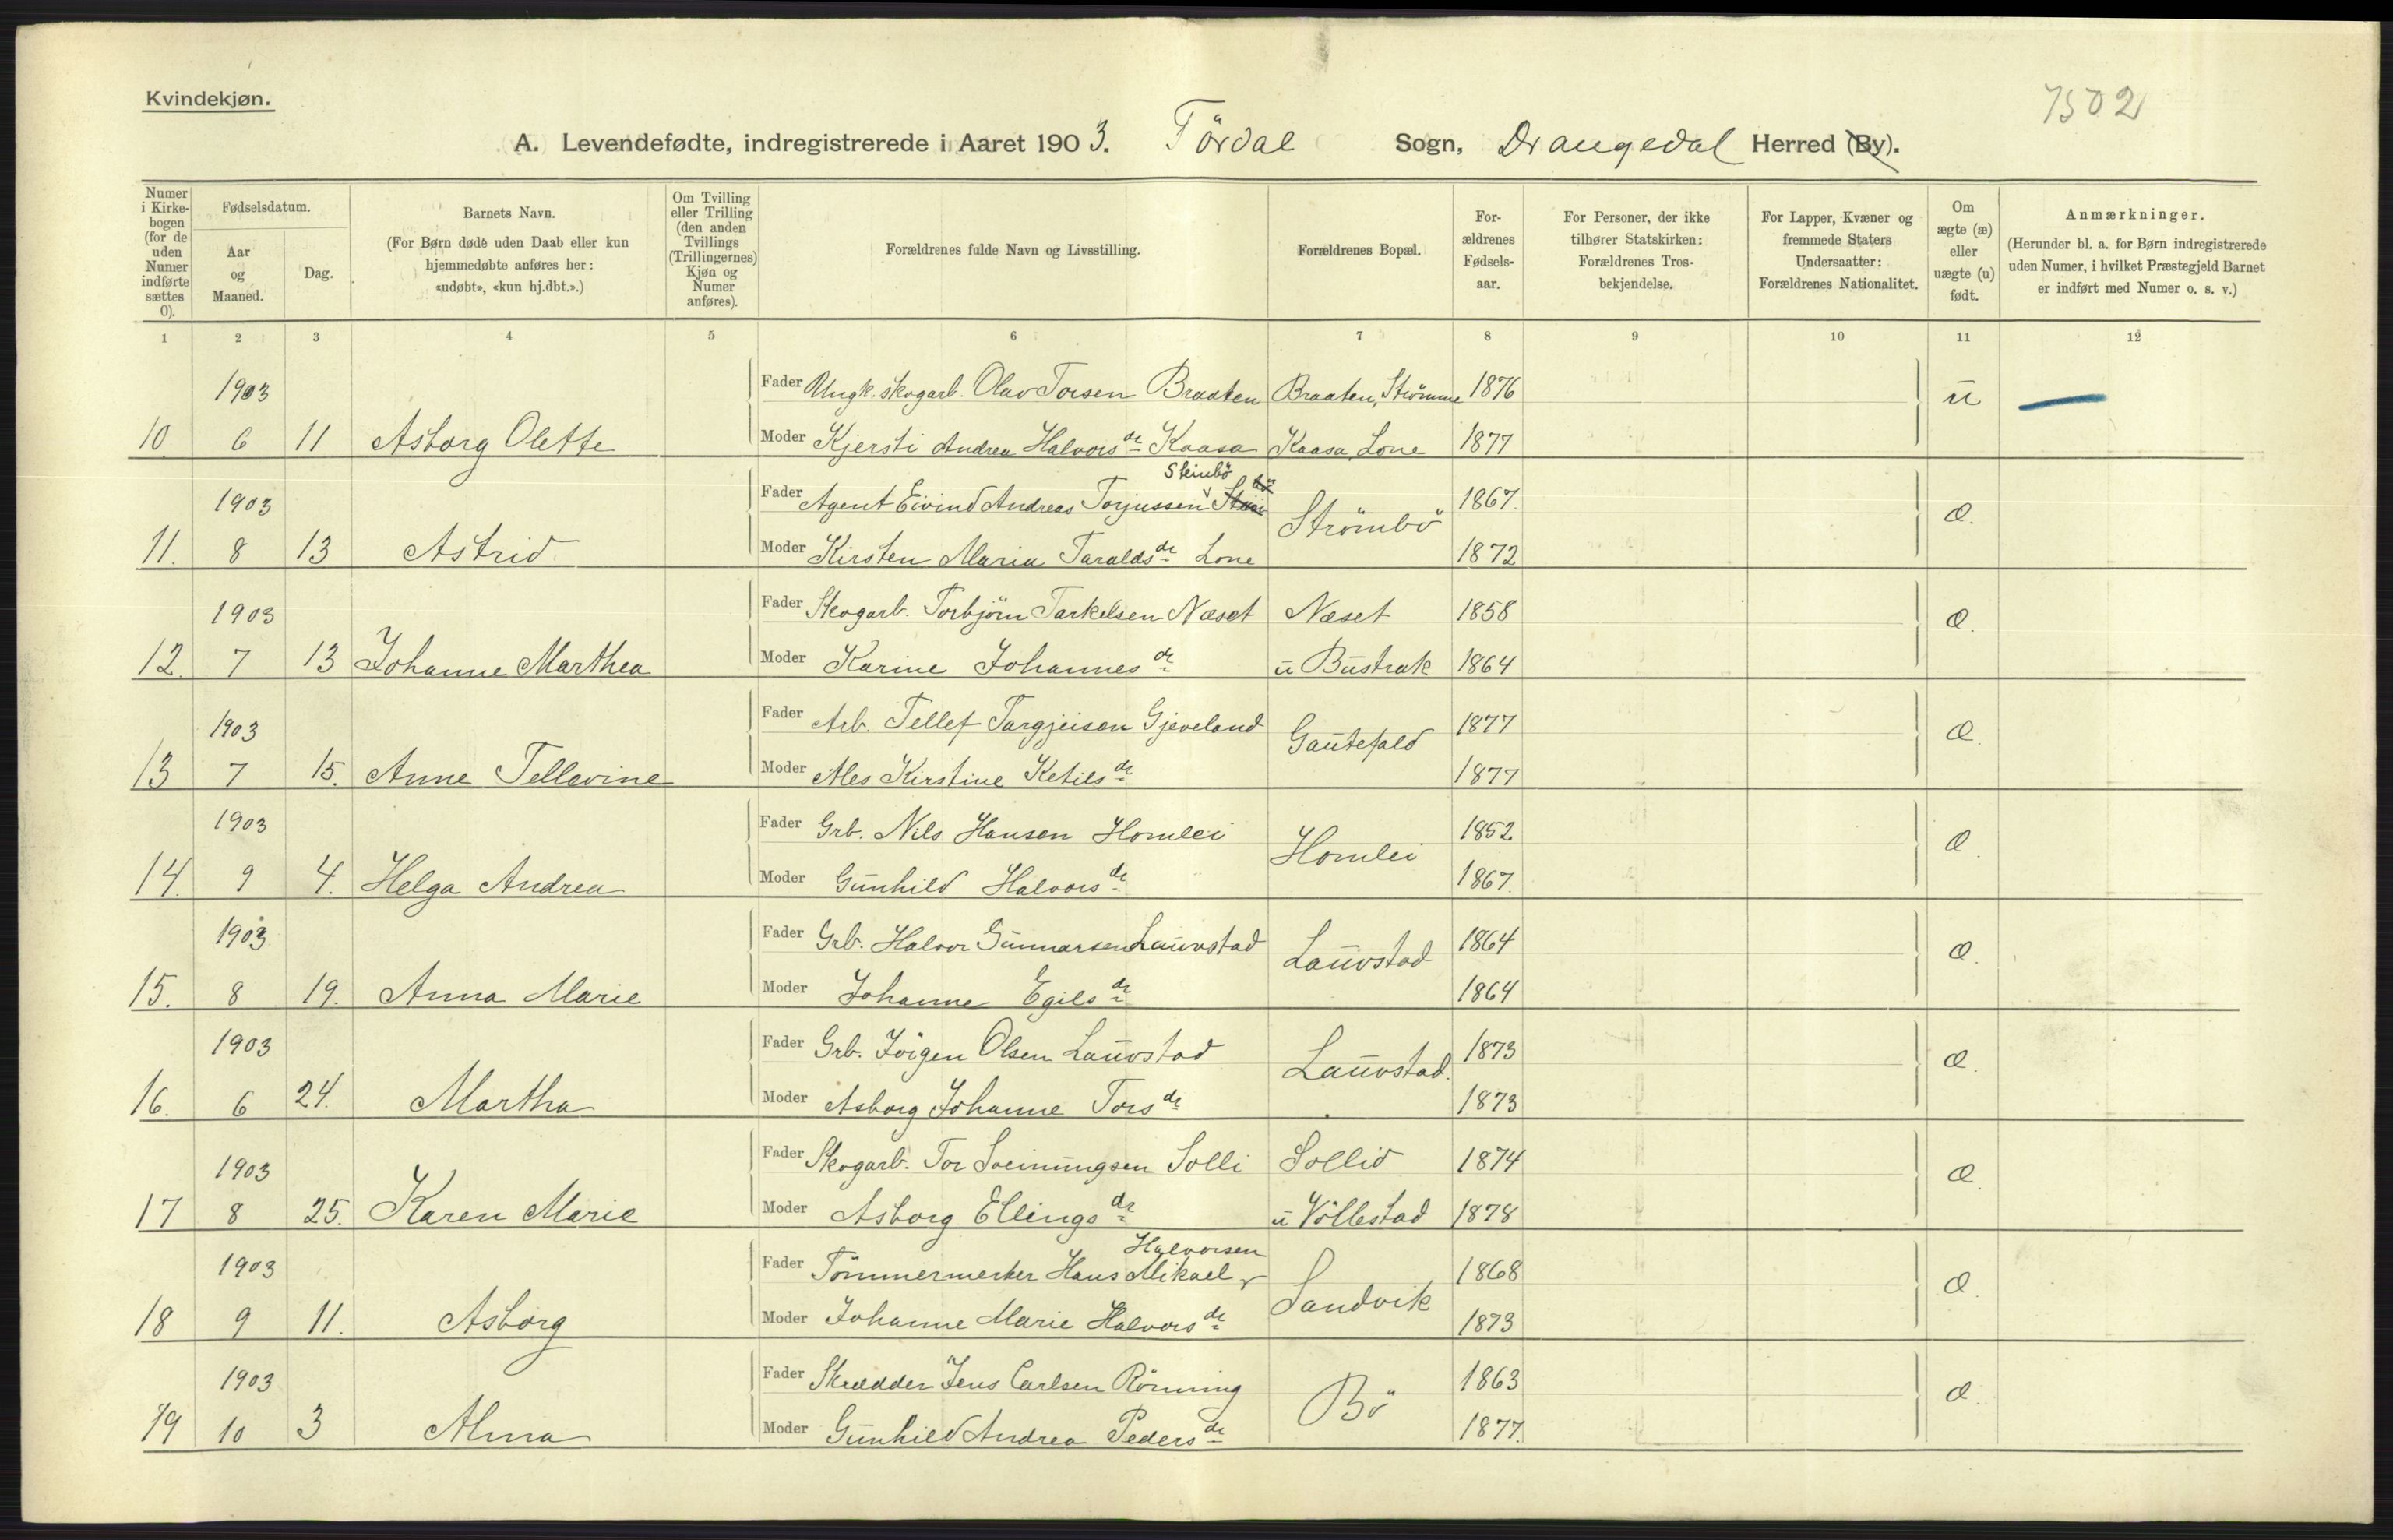 Kvindekjøn.
7502
A. Levendefødte, indregistrerede i Aaret 1903. Tördal Sogn, Drangedal Herred (By).
Numer i Kirkebogen (for de uden Numer indførte sættes 0).
Fødselsdatum.
Aar og Maaned.
Dag.
Barnets Navn.
(For Børn døde uden Daab eller kun hjemmedøbte anføres her: «udøbt», «kun hj.dbt.».)
Om Tvilling eller Trilling (den anden Tvillings (Trillingernes) Kjøn og Numer anføres).
Forældrenes fulde Navn og Livsstilling.
Forældrenes Bopæl.
Forældrenes Fødselsaar.
For Personer, der ikke tilhører Statskirken: Forældrenes Trosbekjendelse.
For Lapper, Kvæner og fremmede Staters Undersaatter: Forældrenes Nationalitet.
Om ægte (æ) eller uægte (u) født.
Anmærkninger.
(Herunder bl. a. for Børn indregistrerede uden Numer, i hvilket Præstegjeld Barnet er indført med Numer o. s. v.)
1 2 3 4 5 6 7 8 9 10 11 12
1903 Fader Ungk. skogarb. Olav Torsen Braaten Braaten, Strömme 1876 u
10 6 11 Asborg Olette Moder Kjersti Andrea Halvorsdr Kaasa Kaasa Lone 1877
Steinbö
1903 Fader Agent Eivind Andreas Torjussen Strömbö 1867. æ.
11. 8 13 Astrid Moder Kirsten Maria Taraldsdr Lone 1872
1903 Fader Skogarb. Torbjörn Tarkelsen Næset Næset 1858 æ.
12. 7 13 Johanne Marthea Moder Karine Johannesdr u Bustrak 1864
1903 Fader Arb. Tellef Targjeisen Gjeveland Gautefald 1877 æ.
13 7 15. Anne Tellevine Moder Ales Kirstine Ketilsdr 1877
1903 Fader Grb. Nils Hansen Homlei Homlei 1852 æ.
14. 9 4. Helga Andrea Moder Gunhild Halvorsdr 1867.
1903 Fader Grb. Halvor Gunnarsen Lauvstad Lauvstad 1864 æ.
15. 8 19. Anna Marie Moder Johanne Egilsdr 1864
1903 Fader Grb. Jörgen Olsen Lauvstad Lauvstad. 1873 æ.
16. 6 24. Martha Moder Asborg Johanne Torsdr 1873
1903 Fader Skogarb. Tor Sveinungsen Solli Sollid 1874 æ.
17 8 25. Karen Marie Moder Asborg Ellingsdr u Völlestad 1878
Halvorsen
1903 Fader Tömmermerker Hans Mikael Sandvik 1868 æ.
18 9 11. Asborg Moder Johanne Marie Halvorsdr 1873
1903 Fader Skrædder Jens Carlsen Rönning Bö 1863 æ.
19 10 3 Alma Moder Gunhild Andrea Pedersdr 1877.